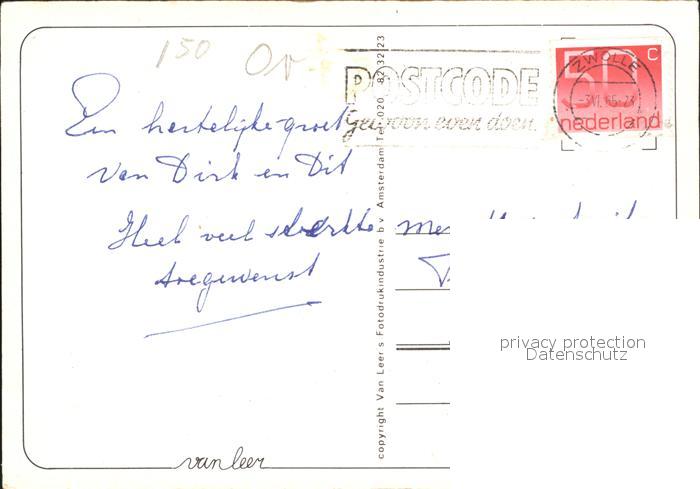 150 Or
POSTCODE
gewoon even doen.
50 C
nederland
ZWOLLE
Een hartelijke groet
van Dirk en Dit
Heel veel sterkte
toegewenst
copyright Van Leer s Fotodrukindustrie b v Amsterdam Tel 020 82 32 23
privacy protection
Datenschutz
van leer